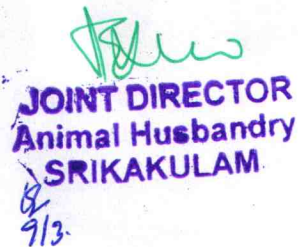 JOINT DIRECTOR
Animal Husbandry
SRIKAKULAM
9/3.